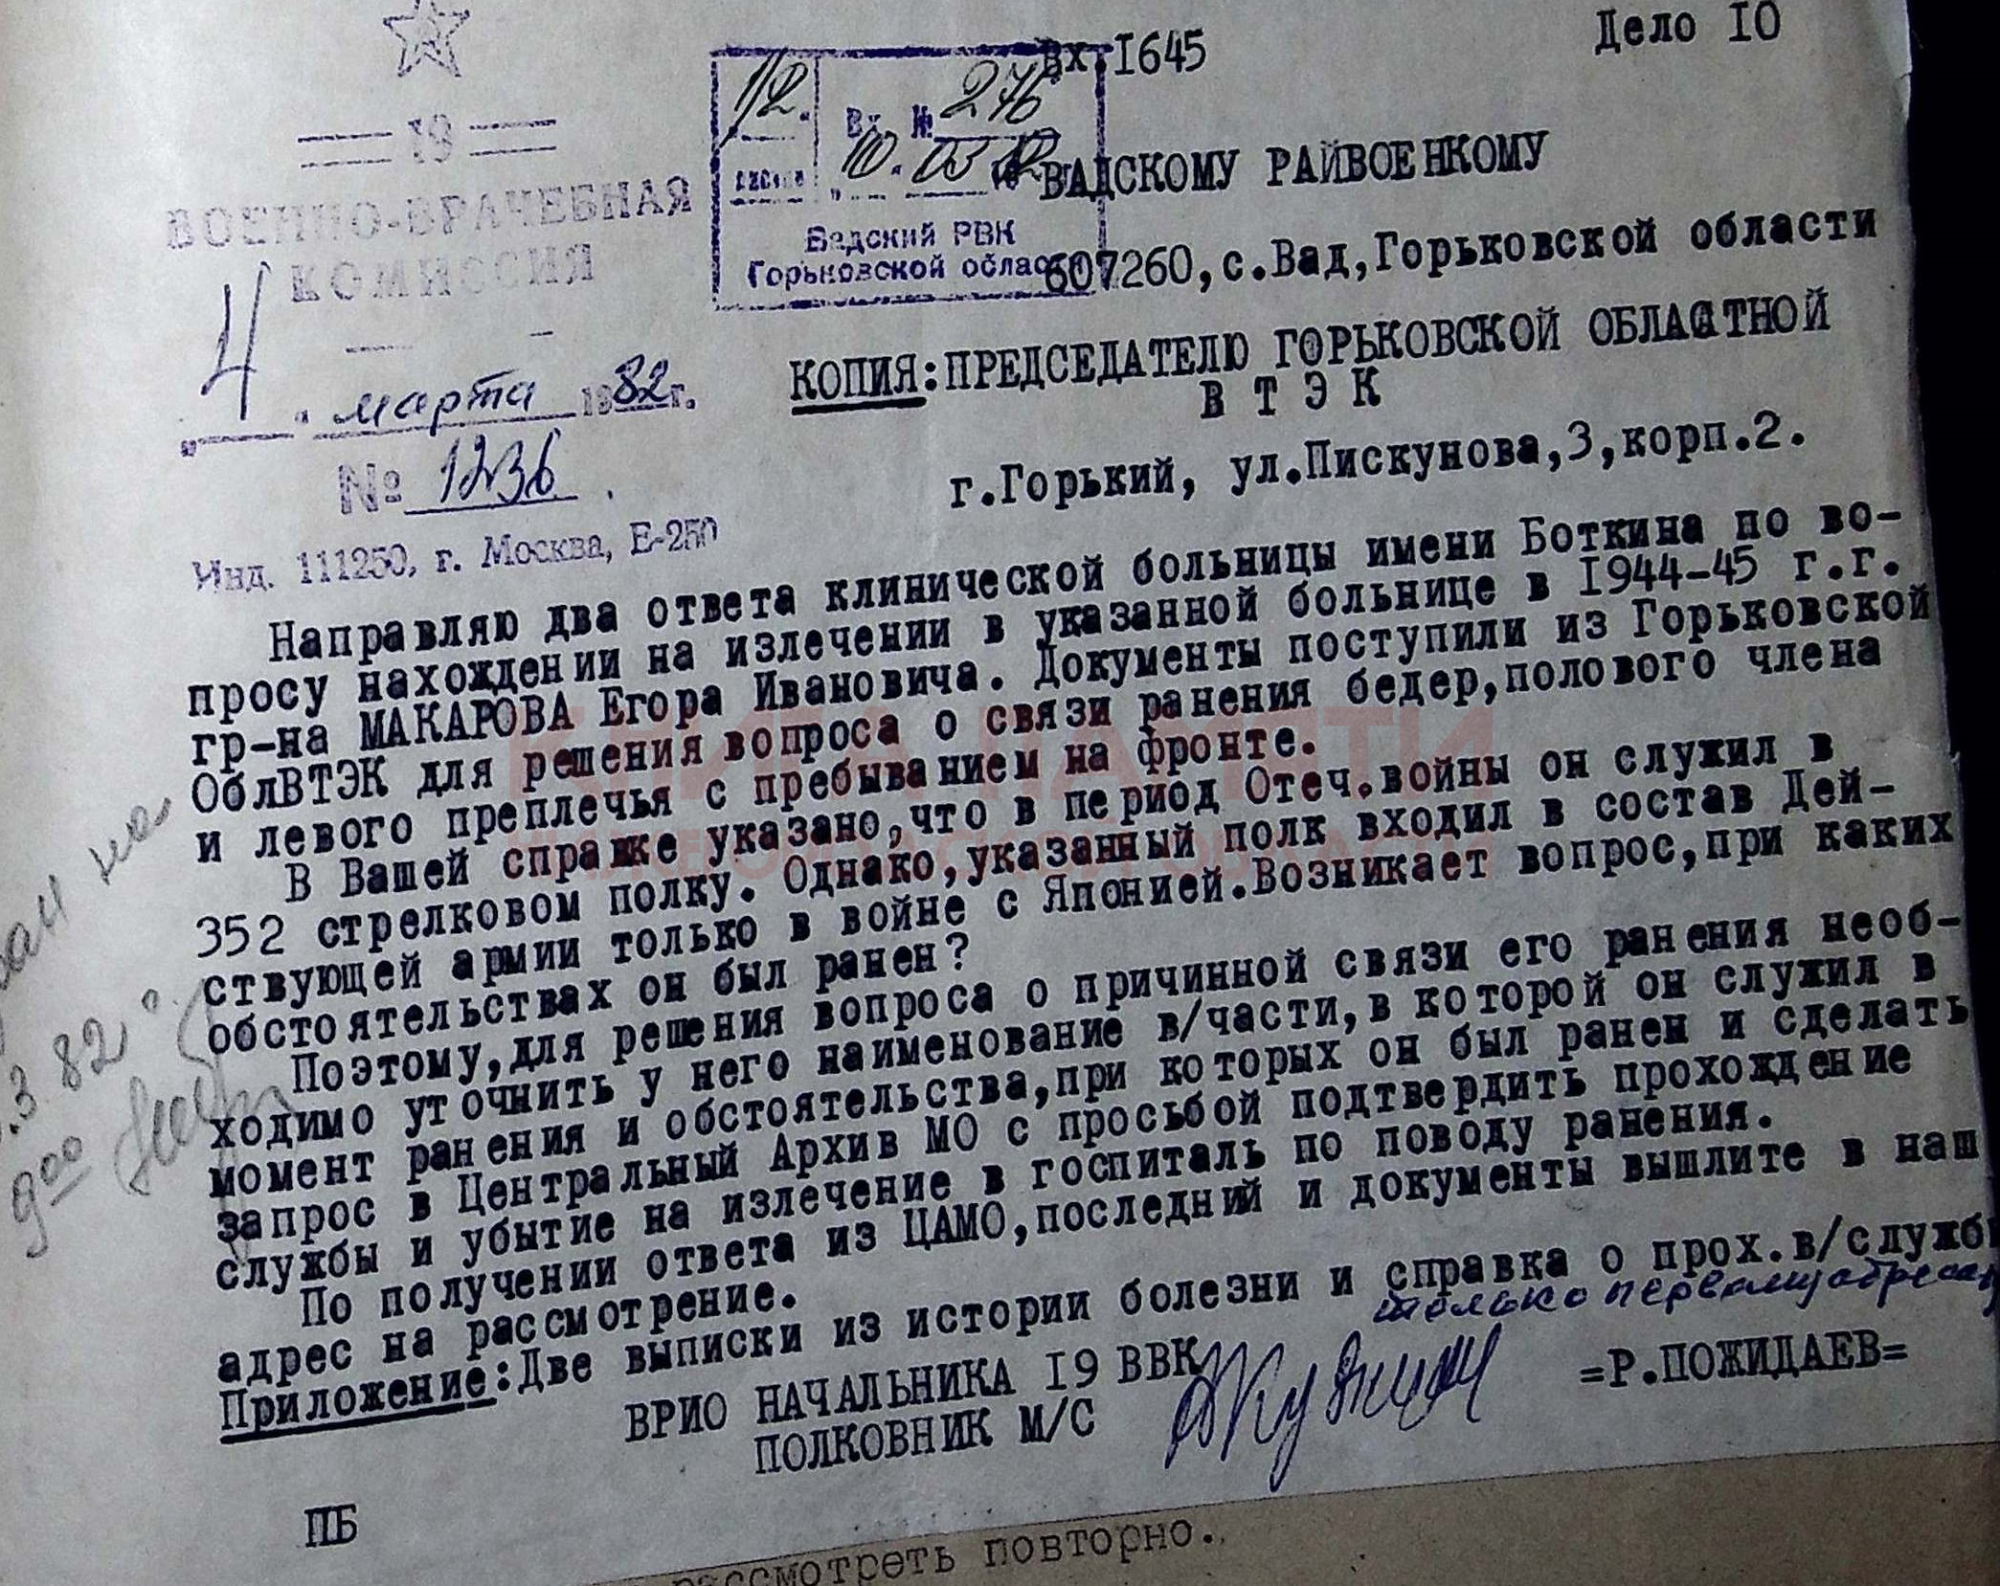 Дело I0
вх.I645
19
ВОЕННО-ВРАЧЕБНАЯ
КОМИССИЯ
„ 4 " марта 1982г.
№ 1236.
Инд. 111250, г. Москва, Е-250
1/2.
Вх № 276
„10" 03 1982
Вадский РВК
Горьковской области
ВАДСКОМУ РАЙВОЕНКОМУ
607260,с.Вад,Горьковской области
КОПИЯ:ПРЕДСЕДАТЕЛЮ ГОРЬКОВСКОЙ ОБЛАСТНОЙ
В Т Э К
г.Горький, ул.Пискунова,3,корп.2.
Направляю два ответа клинической больницы имени Боткина по во-
просу нахождении на излечении в указанной больнице в I944-45 г.г.
гр-на МАКАРОВА Егора Ивановича. Документы поступили из Горьковской
ОблВТЭК для решения вопроса о связи ранения бедер,полового члена
и левого преплечья с пребыванием на фронте.
В Вашей справке указано,что в период Отеч.войны он служил в
352 стрелковом полку. Однако,указанный полк входил в состав Дей-
ствующей армии только в войне с Японией.Возникает вопрос,при каких
обстоятельствах он был ранен?
Поэтому,для решения вопроса о причинной связи его ранения необ-
ходимо уточнить у него наименование в/части,в которой он служил в
момент ранения и обстоятельства,при которых он был ранен и сделать
запрос в Центральный Архив МО с просьбой подтвердить прохождение
службы и убытие на излечение в госпиталь по поводу ранения.
По получении ответа из ЦАМО,последний и документы вышлите в наш
адрес на рассмотрение.
Приложение:Две выписки из истории болезни и справка о прох.в/службы
только первому адресату
ВРИО НАЧАЛЬНИКА I9 ВВК
ПОЛКОВНИК М/С
=Р.ПОЖИДАЕВ=
ПБ
рассмотреть повторно.
на
.3 82
9⁰⁰
КНИГА ПАМЯТИ